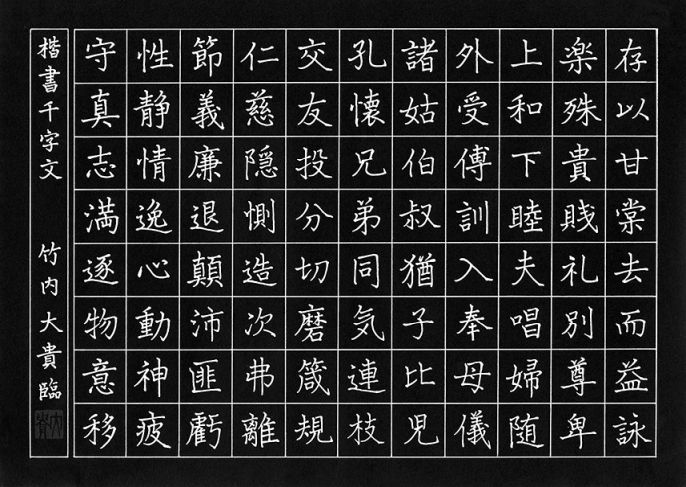 存以甘棠去而益詠
楽殊貴賎礼別尊卑
上和下睦夫唱婦随
外受傅訓入奉母儀
諸姑伯叔猶子比児
孔懐兄弟同気連枝
交友投分切磨箴規
仁慈隠惻造次弗離
節義廉退顛沛匪虧
性静情逸心動神疲
守真志満逐物意移
楷書千字文 竹内大貴臨